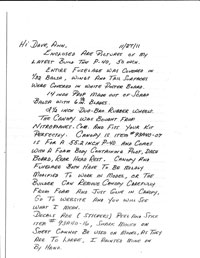 Hi Dave, Ann, 11/27/11
Enclosed are pictures of my
latest build the P-40, 50 inch.
Entire fuselage was covered in
1/32 balsa, wings and tail surfaces
were covered in white poster board.
14 inch prop made out of scrap
balsa with 6 in. blades.
2 1/2 inch Du-Bro rubber wheels.
The canopy was bought from
Nitroplanes.com and fits your kit
perfectly. Canopy is item #
is for a 55.2 inch P-40 and comes
with a foam body containing pilot, dash
board, rear head rest. Canopy and
fuselage both have to be
modified to work in model, or the
builder can remove canopy carefully
from foam and just glue in canopy.
Go to website and you will see
what I mean.
Decals are (stickers) peel and stick
item # , shark mouth on
sheet cannot be used on model as they
are to large, I painted mine on
by hand.